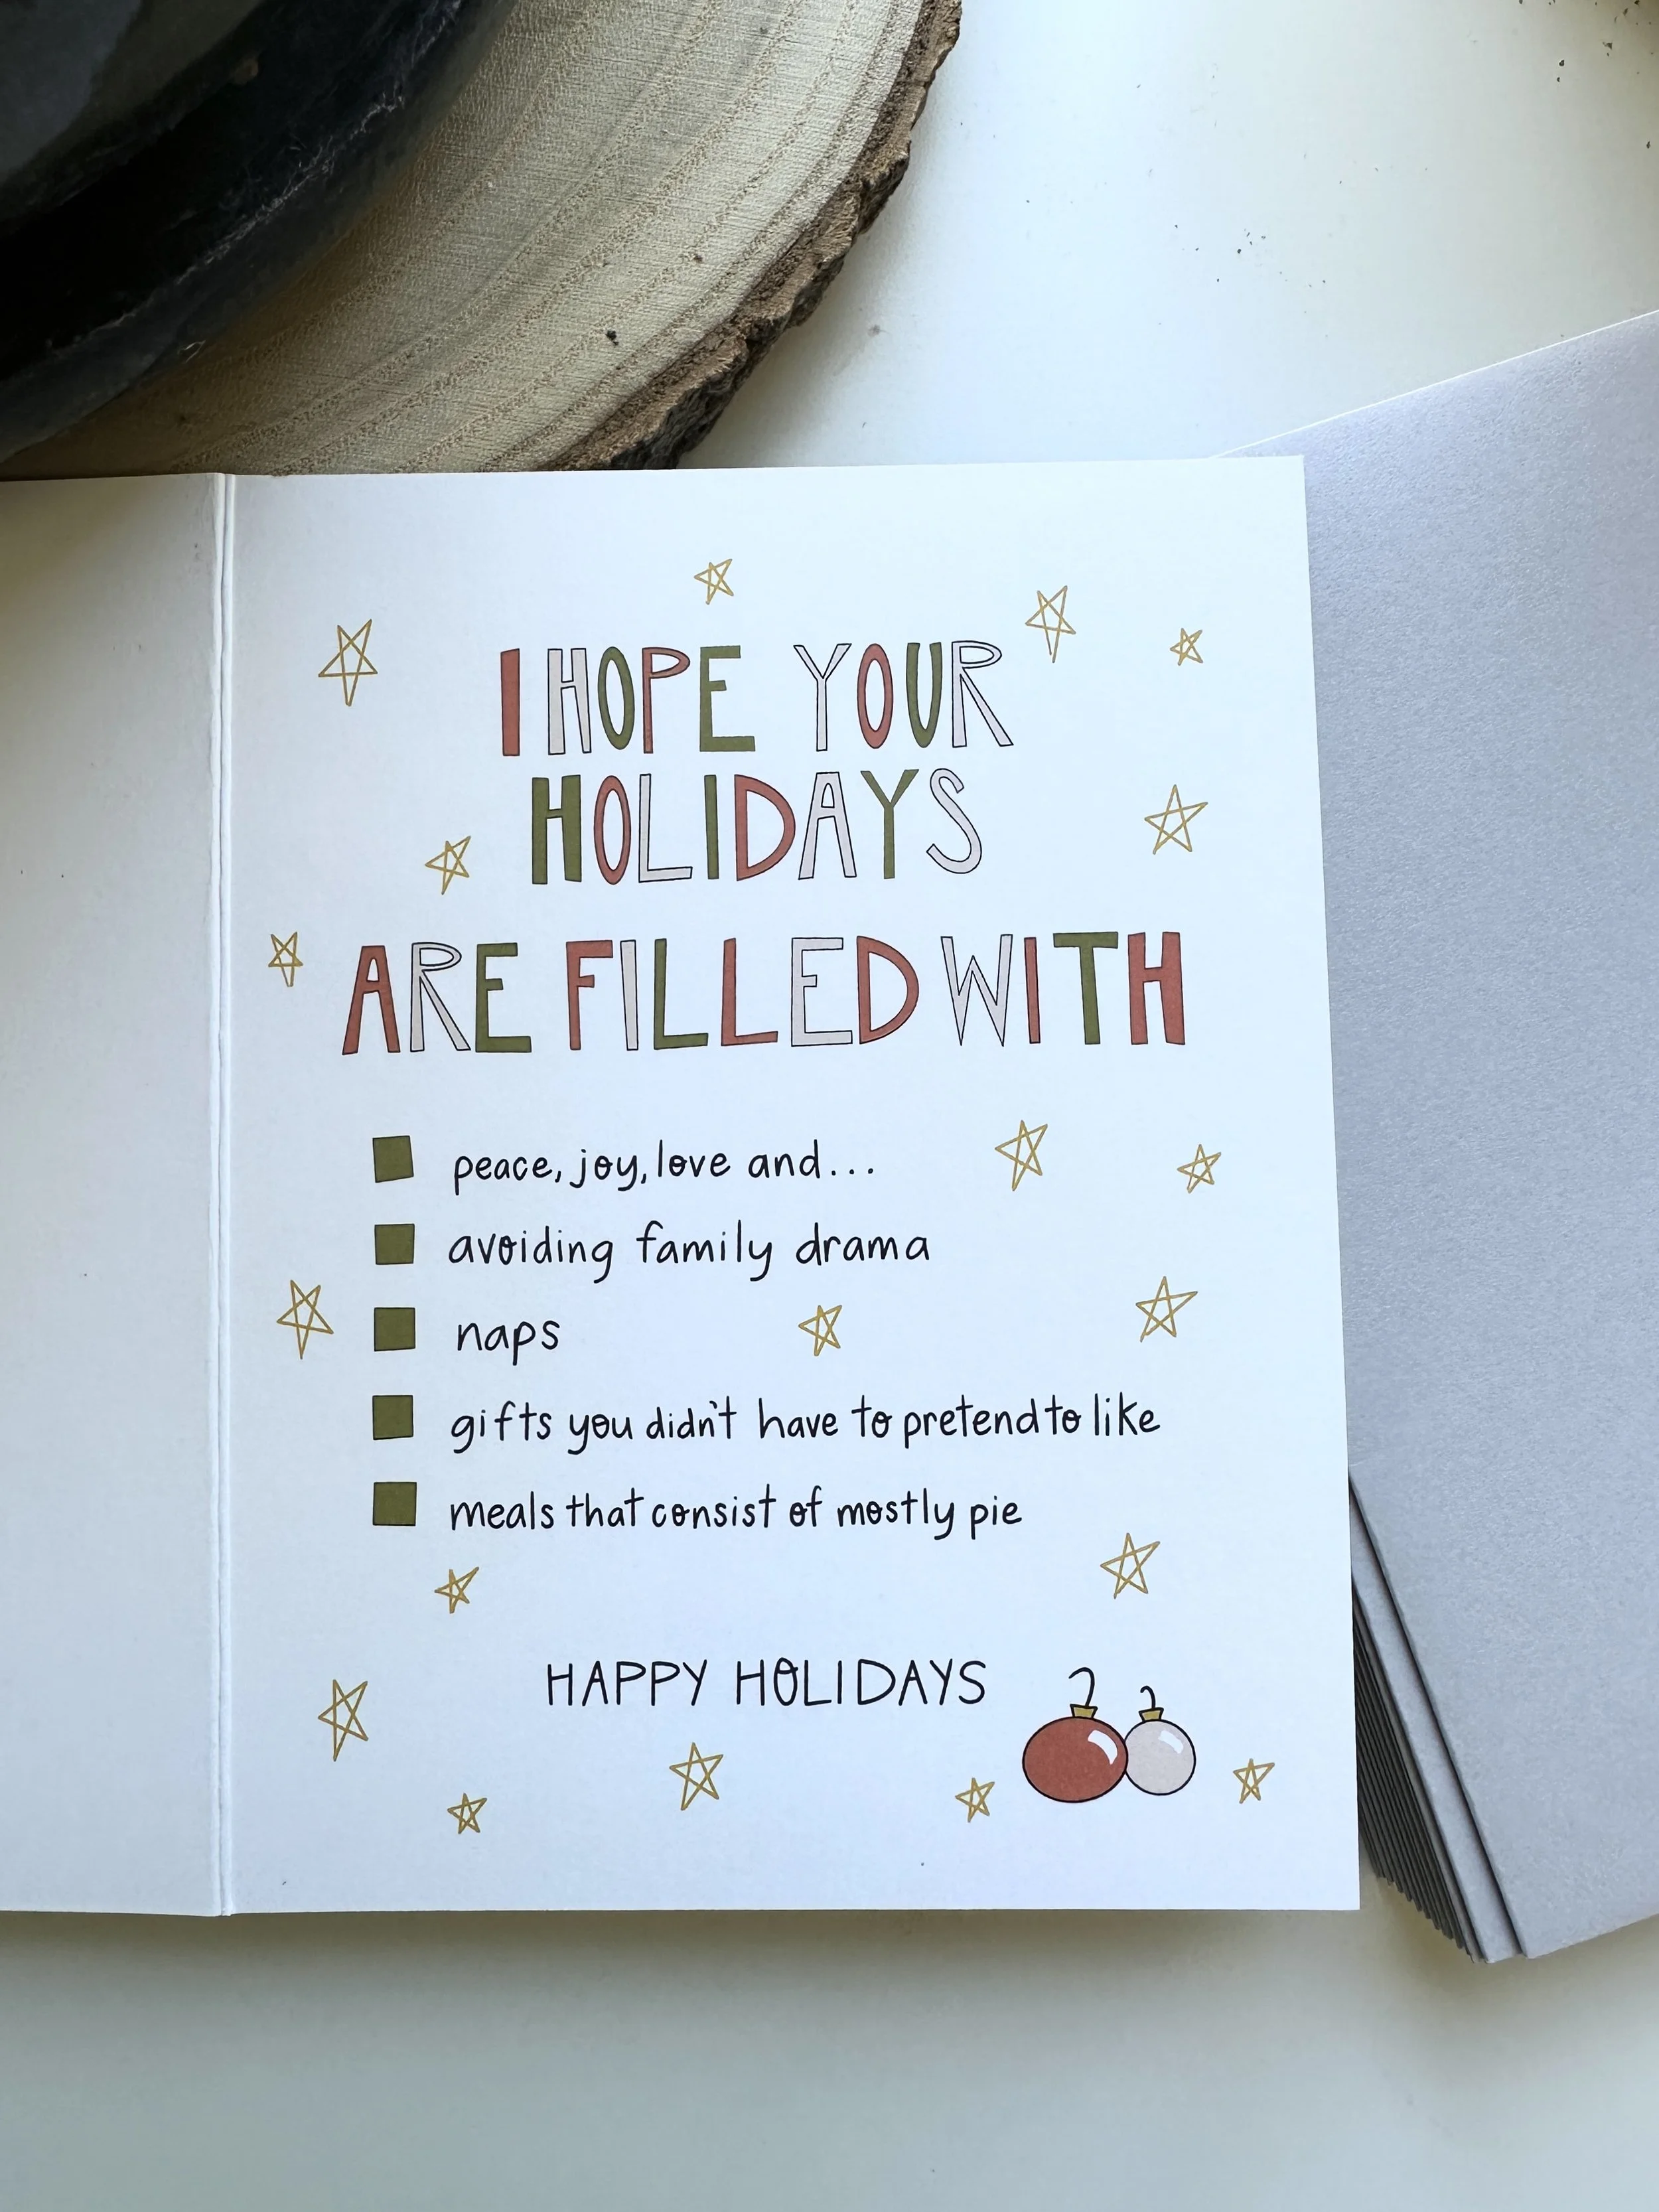 I HOPE YOUR
HOLIDAYS
ARE FILLED WITH
peace, joy, love and...
avoiding family drama
naps
gifts you didn't have to pretend to like
meals that consist of mostly pie
HAPPY HOLIDAYS